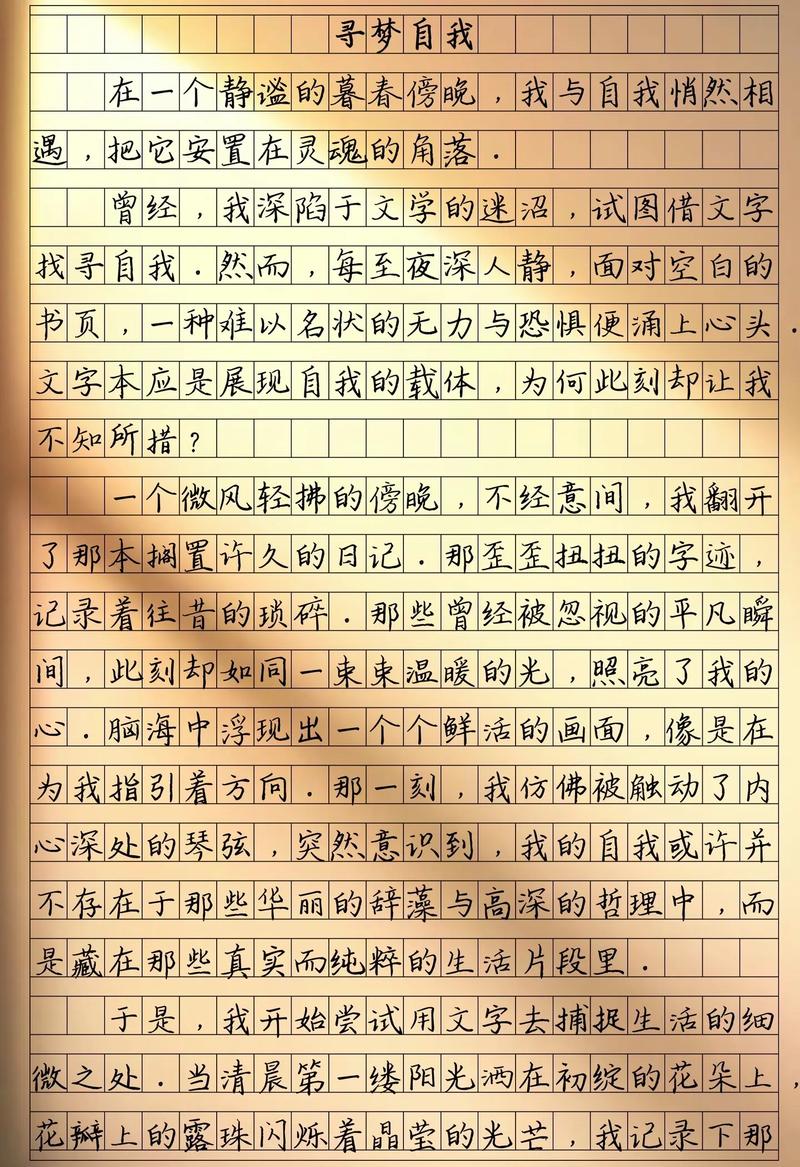 寻梦自我
在一个静谧的暮春傍晚，我与自我悄然相
遇，把它安置在灵魂的角落．
曾经，我深陷于文学的迷沼，试图借文字
找寻自我．然而，每至夜深人静，面对空白的
书页，一种难以名状的无力与恐惧便涌上心头．
文字本应是展现自我的载体，为何此刻却让我
不知所措？
一个微风轻拂的傍晚，不经意间，我翻开
了那本搁置许久的日记．那歪歪扭扭的字迹，
记录着往昔的琐碎．那些曾经被忽视的平凡瞬
间，此刻却如同一束束温暖的光，照亮了我的
心．脑海中浮现出一个个鲜活的画面，像是在
为我指引着方向．那一刻，我仿佛被触动了内
心深处的琴弦，突然意识到，我的自我或许并
不存在于那些华丽的辞藻与高深的哲理中，而
是藏在那些真实而纯粹的生活片段里．
于是，我开始尝试用文字去捕捉生活的细
微之处．当清晨第一缕阳光洒在初绽的花朵上，
花瓣上的露珠闪烁着晶莹的光芒，我记录下那